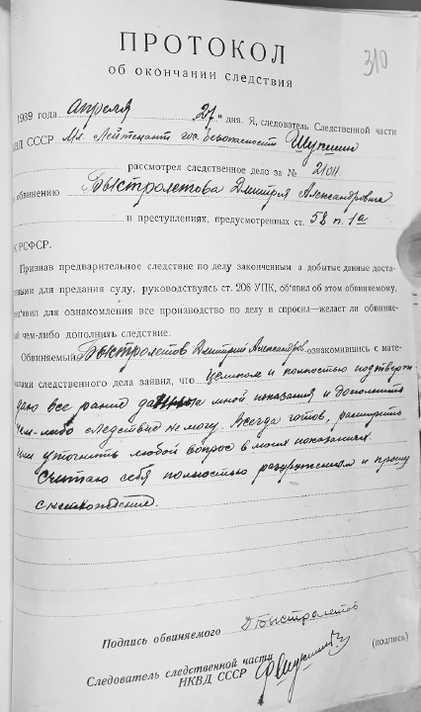 310
ПРОТОКОЛ
об окончании следствия
1939 года апреля „27“ дня. Я, следователь Следственной части
НКВД СССР Мл. Лейтенант гос безопасности Шукшин
рассмотрел следственное дело за № 21011
обвинению Быстролетова Дмитрия Александровича
в преступлениях, предусмотренных ст. 58 п. 1а
К РСФСР.
Признав предварительное следствие по делу законченным а добытые данные доста-
для предания суду, руководствуясь ст. 206 УПК, об'явил об этом обвиняемому,
для ознакомления все производство по делу и спросил—желает ли обвиняе-
чем-либо дополнить следствие.
Обвиняемый Быстролетов Дмитрий Александров. ознакомившись с мате-
следственного дела заявил, что Целиком и полностью подтверж
даю все ранее данные мной показания и дополнить
чем-либо следствие не могу. Всегда готов, расширить
или уточнить любой вопрос в моих показаниях.
Считаю себя полностью разоруженным и прошу
снисхождения.
Подпись обвиняемого ДБыстролетов
Следователь следственной части
НКВД СССР
(подпись)